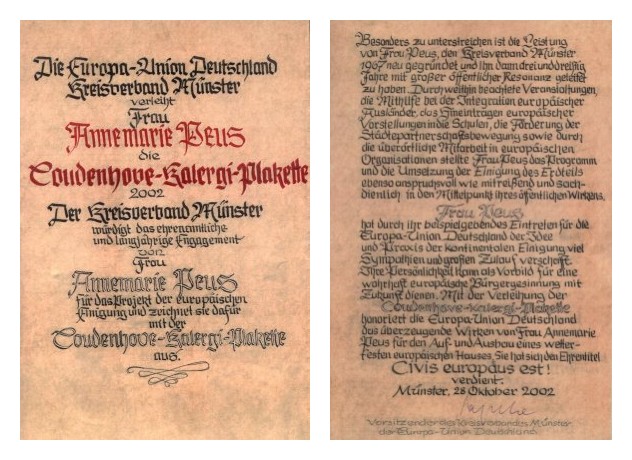 Die Europa-Union Deutschland
Kreisverband Münster
verleiht
Frau
Annemarie Peus
die
Coudenhove-Kalergi-Plakette
2002
Der Kreisverband Münster
würdigt das ehrenamtliche
und langjährige Engagement
von
Frau
Annemarie Peus
für das Projekt der europäischen
Einigung und zeichnet sie dafür
mit der
Coudenhove-Kalergi-Plakette
aus.
Besonders zu unterstreichen ist die Leistung
von Frau Peus, den Kreisverband Münster
1967 neu gegründet und ihn dann dreiunddreißig
Jahre mit großer öffentlicher Resonanz geleitet
zu haben. Durch weithin beachtete Veranstaltungen,
die Mithilfe bei der Integration europäischer
Ausländer, das Hineintragen europäischer
Vorstellungen in die Schulen, die Förderung der
Städtepartnerschaftsbewegung sowie durch
die überörtliche Mitarbeit in europäischen
Organisationen stellte Frau Peus das Programm
und die Umsetzung der Einigung des Erdteils
ebenso anspruchvoll wie mitreißend und sach-
dienlich in den Mittelpunkt ihres öffentlichen Wirkens.
Frau Peus
hat durch ihr beispielgebendes Eintreten für die
Europa-Union Deutschland der Idee
und Praxis der kontinentalen Einigung viel
Sympathien und großen Zulauf verschafft.
Ihre Persönlichkeit kann als Vorbild für eine
wahrhaft europäische Bürgergesinnung mit
Zukunft dienen. Mit der Verleihung der
Coudenhove-Kalergi-Plakette
honoriert die Europa-Union Deutschland
das überzeugende Wirken von Frau Annemarie
Peus für den Auf- und Ausbau eines wetter-
festen europäischen Hauses. Sie hat sich den Ehrentitel
Civis europäus est!
verdient.
Münster, 28 Oktober 2002
Vorsitzender des Kreisverbandes Münster
der Europa-Union Deutschland